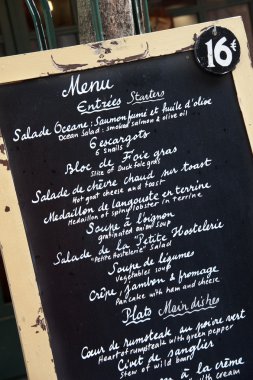 16€
Menu
Entrées Starters
Salade Océane : Saumon fumé et huile d'olive
Ocean Salad : smoked salmon & olive oil
6 escargots
6 Snails
Bloc de Foie gras
Slice of Duck foie gras
Salade de chèvre chaud sur toast
Hot goat cheese and toast
Medaillon de langouste en terrine
Medaillon of spiny lobster in terrine
Soupe à l'oignon
gratinated onion soup
Salade de la Petite Hostelerie
"Petite hostelerie" Salad
Soupe de légumes
Vegetables soup
Crêpe, jambon & fromage
Pancake with ham and cheese
Plats Main dishes
Cœur de rumsteak au poivre vert
Heart of rumpsteak with green pepper
Civet de sanglier
Stew of wild boar
à la crème
with cream